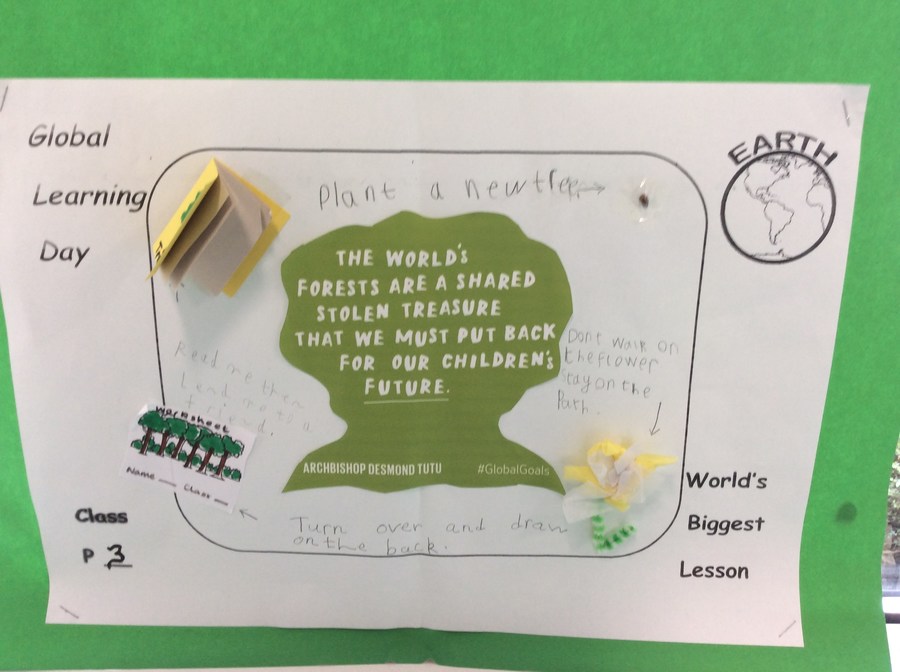 Global
Learning
Day
EARTH
Plant a new tree
THE WORLD'S
FORESTS ARE A SHARED
STOLEN TREASURE
THAT WE MUST PUT BACK
FOR OUR CHILDREN'S
FUTURE.
ARCHBISHOP DESMOND TUTU
#GlobalGoals
Dont walk on
the flower
stay on the
Path.
Read me then
Lend me to a
friend.
worksheet
Name
Class
Turn over and draw
on the back.
Class
P 3
World's
Biggest
Lesson